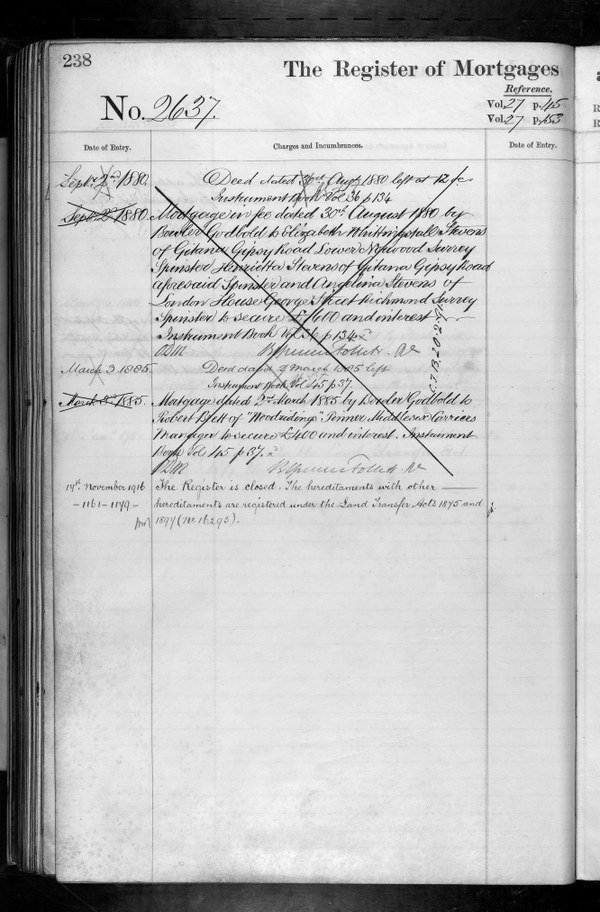 238
The Register of Mortgages
Reference.
No. 2637.
Vol. 27 p. 45
Vol. 27 p. 153
Date of Entry.
Charges and Incumbrances.
Date of Entry.
Sept. 2nd 1880.
Deed dated 30th Augt 1880 left at 12 o'c
Instrument Book Vol 36 p 134
Sept. 2d 1880.
Mortgage in fee dated 30th August 1880 by
Godbold to Elizabeth Whittingstall Stevens
of Gitana Gipsy Road Lower Norwood Surrey
Spinster Henrietta Stevens of Gitana Gipsy Road
aforesaid Spinster and Angelina Stevens of
London House George Street Richmond Surrey
Spinster to secure £1600 and interest
Instrument Book Vol 36 p 134.
March 3 1885.
Deed dated March 1885 left
Instrument Book Vol 45 p 37.
March 1885.
Mortgage dated 2nd March 1885 by Godbold to
Robert of "Woodridings" Pinner Middlesex
Manager to secure £400 and interest. Instrument
Book Vol 45 p 37.
14th November 1916
The Register is closed. The hereditaments with other
– 1161 – 1179 –
hereditaments are registered under the Land Transfer Acts 1875 and
1897 (No 16293).